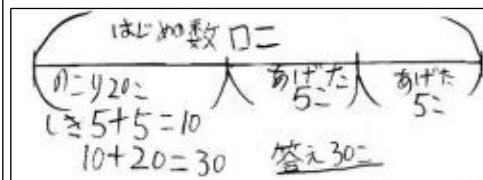 はじめの数□こ
のこり20こ あげた5こ あげた5こ
しき5+5=10
10+20=30 答え30こ